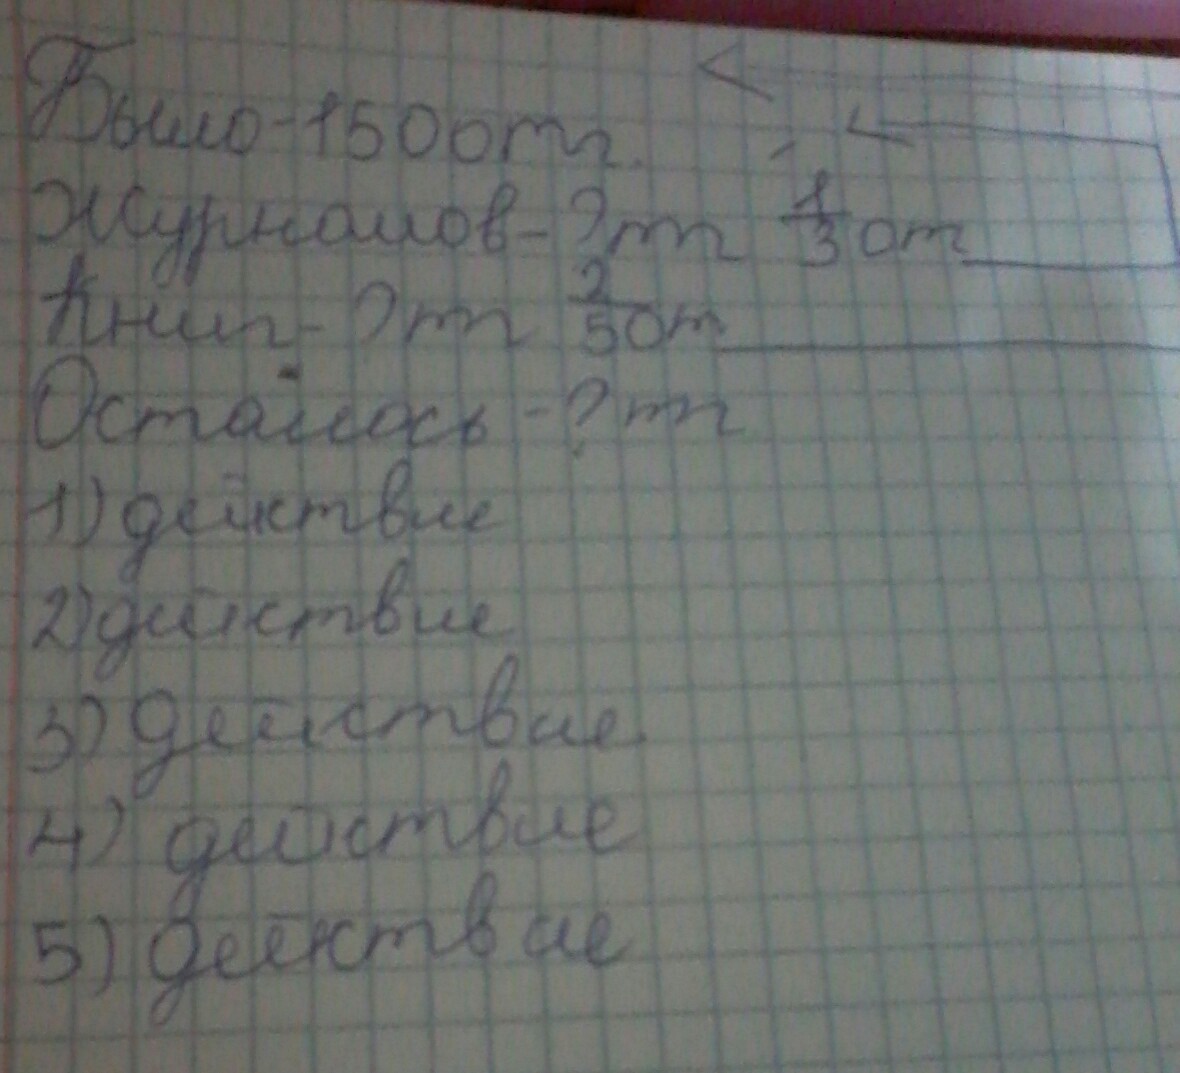 Было-1500тг.
Журналов-?тг 1/3 от
Книг-?тг 2/5 от
Осталось-?тг
1) действие
2) действие
3) действие
4) действие
5) действие